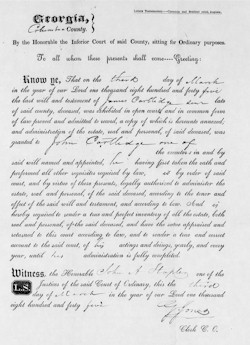 Georgia,
Columbia County.
By the Honorable the Inferior Court of said County, sitting for Ordinary purposes.
To all whom these presents shall come—Greeting:
Know ye, That on the third day of March
in the year of our Lord one thousand eight hundred and forty five
the last will and testament of James Cartledge Senr
late of said county, deceased, was exhibited in open court and in common form
of law proved and admitted to record, a copy of which is hereunto annexed,
and administration of the estate, real and personal, of said deceased, was
granted to John Cartledge one of
the executors in and by
said will named and appointed, he having first taken the oath and
performed all other requisites required by law, by order of said
court, and by virtue of these presents, legally authorized to administer the
estate, real and personal, of the said deceased, according to the tenor and
effect of the said will and testament, and according to law. And is
hereby required to render a true and perfect inventory of all the estate, both
real and personal, of the said deceased, and have the same appraised and
returned to this court according to law, and to render a true and correct
account to the said court, of his actings and doings, yearly, and every
year, until his administration is fully completed.
Witness, the Honorable John A. Staples one of the
L.S. Justices of the said Court of Ordinary, this the third
day of March in the year of our Lord one thousand
eight hundred and forty five
Jones
Clerk C. O.